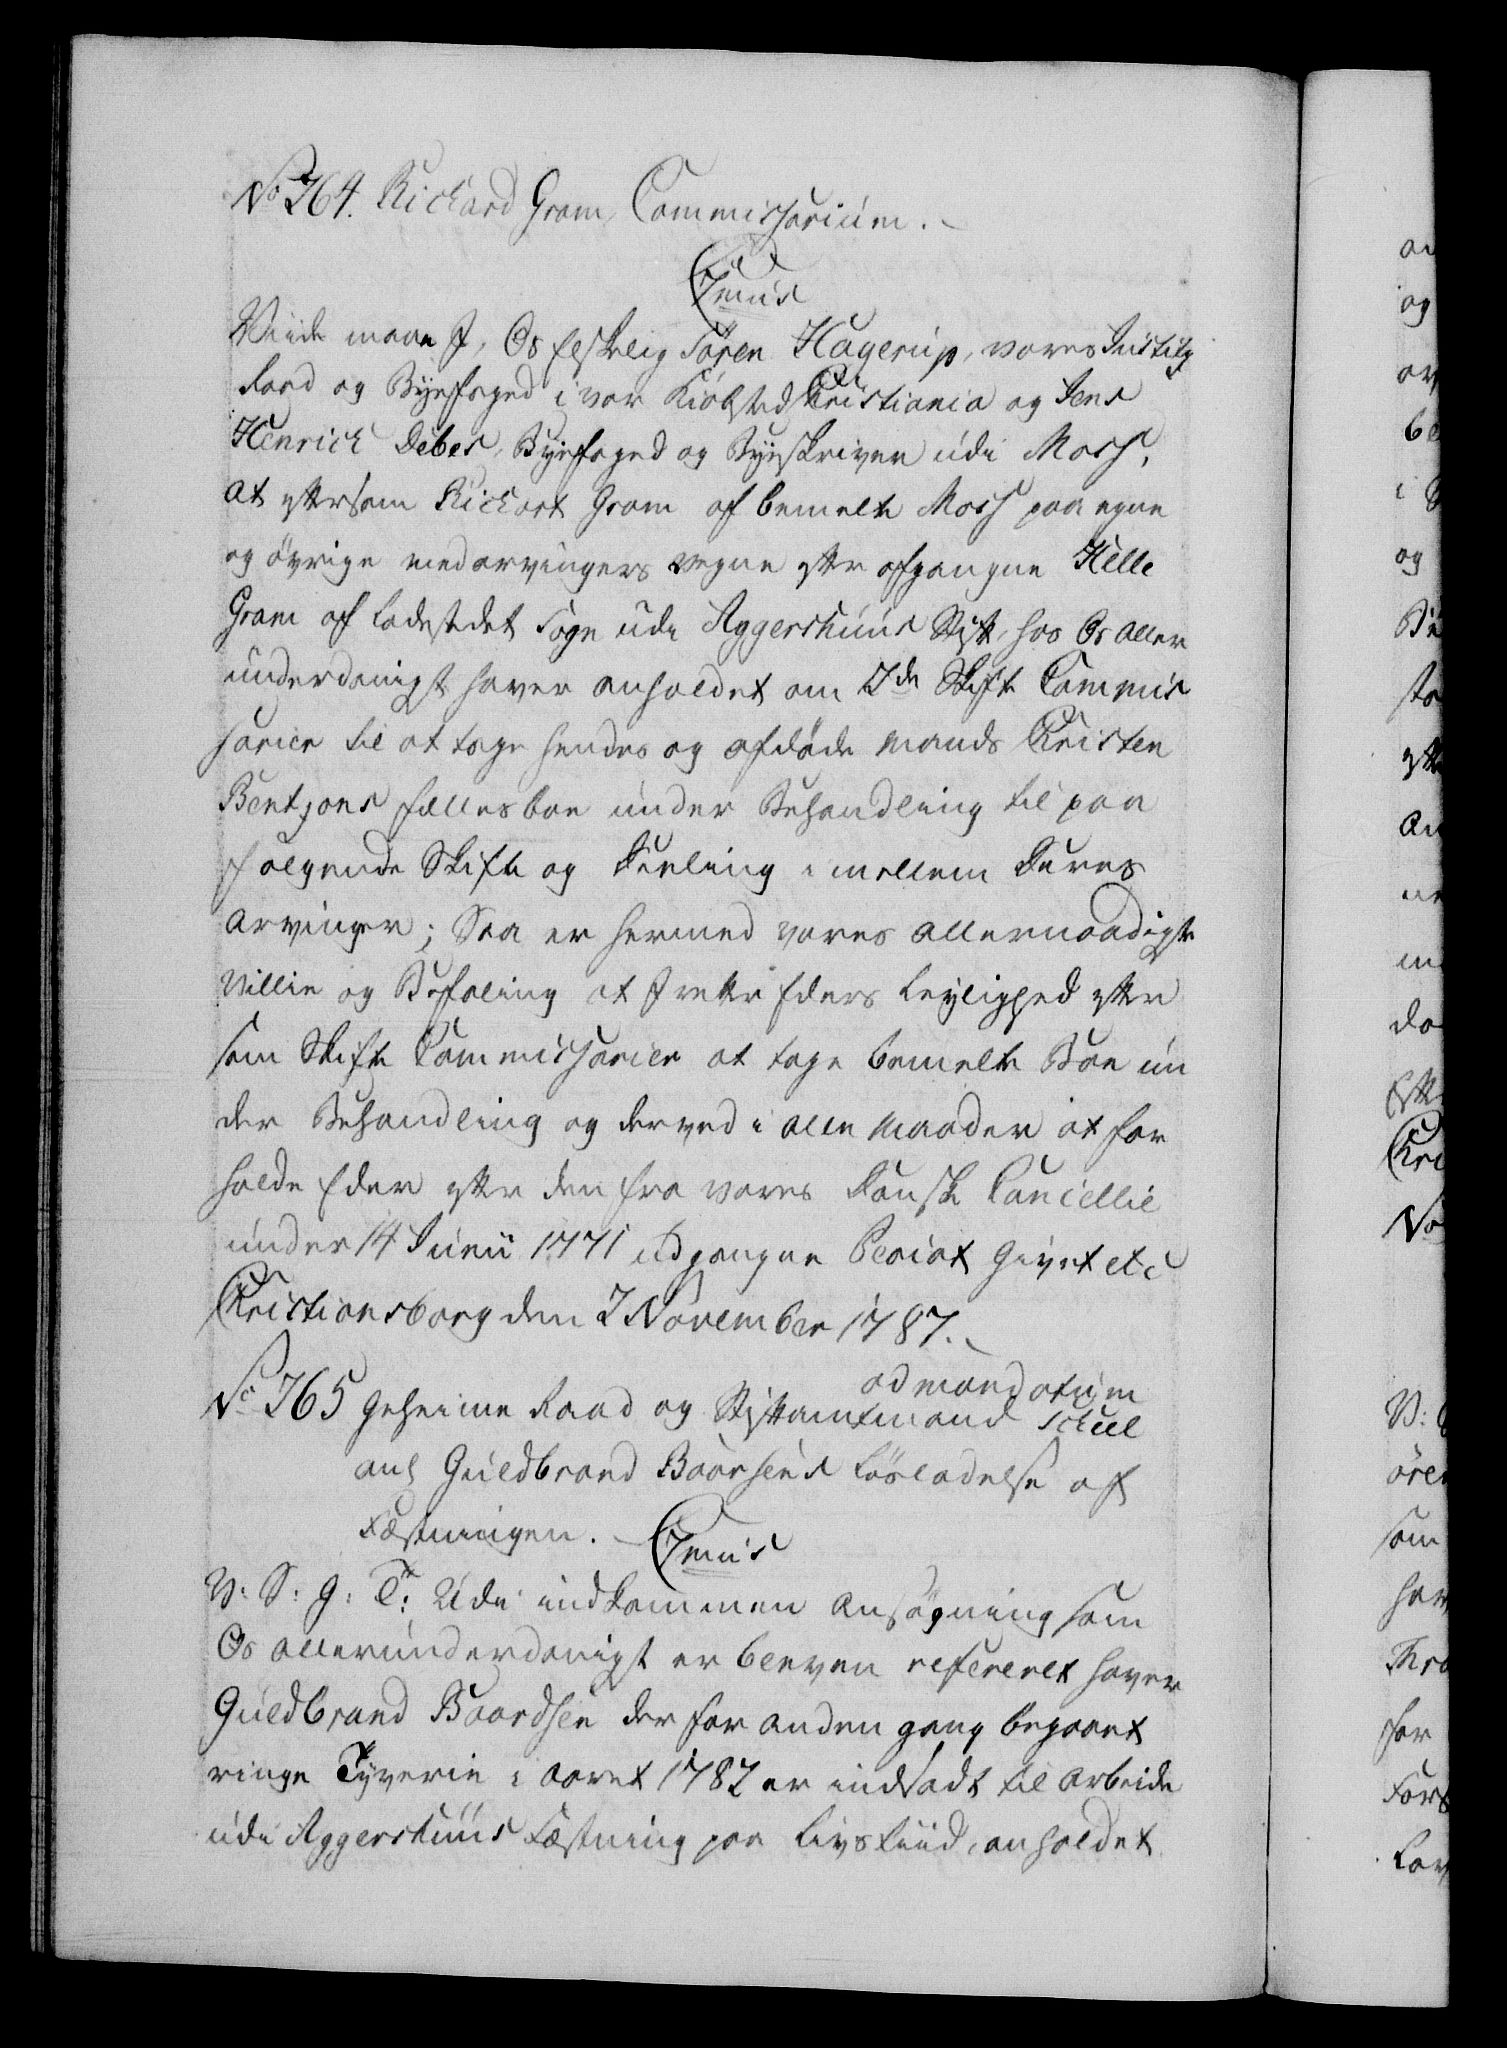 No 764. Richard Gram, Commissarium.
C 7mus
Viide maae I, Os Elskelig Sören Hagerup, vores Justitz
Raad og Byefoged i vor Kiöbsted Christiania og Jens
Henrich Debes, Byefoged og Byeskriver udi Moss,
at eftersom Richart Gram af bemelte Moss paa egne
og övrige medarvingers vegne efter afgangne Helle
Gram af Ladestedet Sogn udi Aggershuus Stift, hos Os aller
underdanigst haver anholdet om 2de Skifte Commis
sarier til at tage hendes og afdöde Mands Christen
Bentzons fælles boe under Behandling til paa
følgende Skifte og Deeling imellem Deres
Arvinger; Saa er hermed vores allernaadigste
Villie og Befaling at I rette Eders leylighed efter
som Skifte Commissarier at tage bemelte Boe un
der Behandling og derved i alle Maader at for
holde Eder efter den fra vores Danske Cancellie
under 14 Junii 1771 udgangne Placat Givet etc
Christiansborg den 2 November 1787.
No 765 Geheime Raad og Stiftamtmand Scheel
ad mandatum
ang Guldbrand Baarsens Lösladelse af
Fæstningen. C 7mus
V: S: G: T: Udi indkommen Ansögning som
Os allerunderdanigst er bleven refereret haver
Guldbrand Baardsen der for anden gang begaaet
ringe Tyverie i Aaret 1782 er indsadt til Arbeide
udi Aggershuus Fæstning paa Livstiid, anholdet